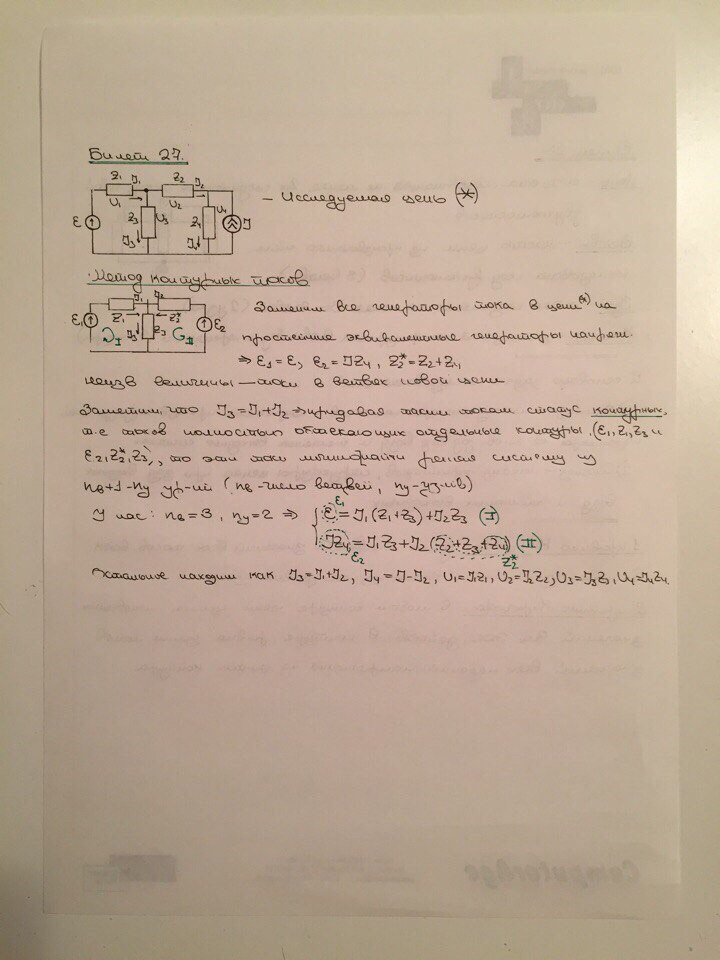 Билет 27.
Z₁ J₁ Z₂ J₂
ε U₁ Z₃ U₃ U₂ Z₄ U₄ J
J₃ J₄
– Исследуемая цепь (*)
Метод контурных токов
J₁ J₂
ε₁ Z₁ Z₂* ε₂
J₃ Z₃
I II
Заменим все генераторы тока в цепи(*) на
простейшие эквивалентные генераторы напряж.
⇒ ε₁ = ε, ε₂ = JZ₄, Z₂* = Z₂+Z₄
неизв величины – токи в ветвях новой цепи
Заметим, что J₃ = J₁+J₂ ⇒ придавая таким токам статус контурных,
т.е токов полностью обтекающих отдельные контуры (ε₁, Z₁, Z₃ и
ε₂, Z₂*, Z₃), то эти токи решая систему из
nв+1-nу ур-ий (nв - число ветвей, nу - узлов)
У нас: nв=3, nу=2 ⇒ { ε = J₁(Z₁+Z₃)+J₂Z₃ (I)
ε₁
JZ₄ = J₁Z₃+J₂(Z₂+Z₃+Z₄) (II)
ε₂ Z₂*
Остальное находим как J₃=J₁+J₂, J₄=J-J₂, U₁=J₁Z₁, U₂=J₂Z₂, U₃=J₃Z₃, U₄=J₄Z₄.
ComputerAge